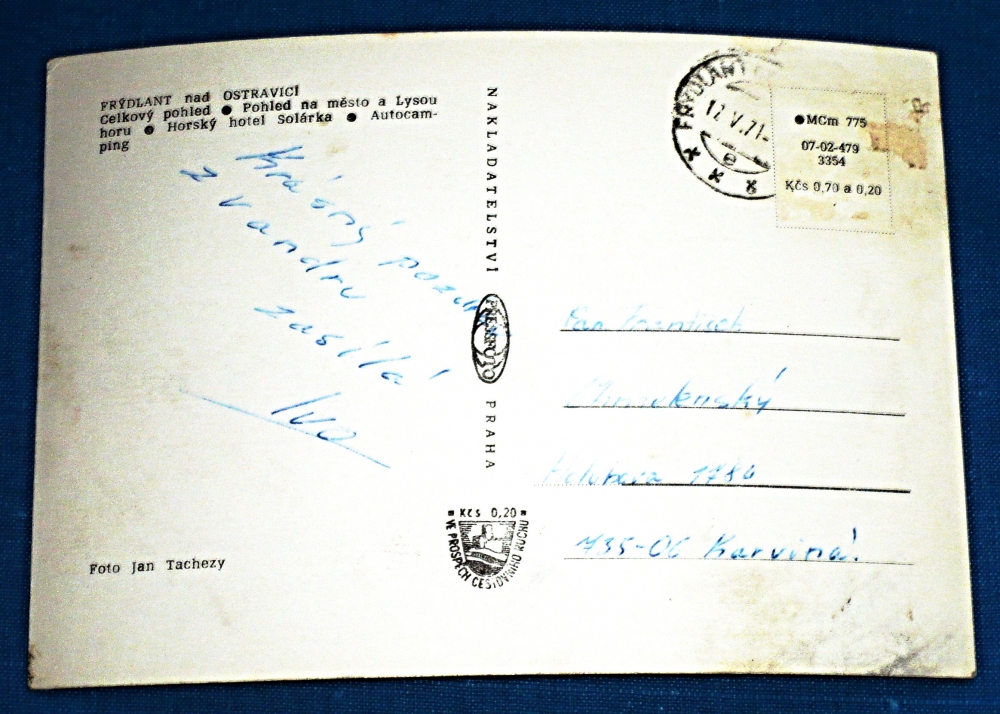 FRÝDLANT nad OSTRAVICÍ
Celkový pohled ● Pohled na město a Lysou
horu ● Horský hotel Solárka ● Autocam-
ping
Krásný pozdrav
z vandru
zasílá
Ivo
Foto Jan Tachezy
NAKLADATELSTVÍ PRESSFOTO PRAHA
Kčs 0,20
VE PROSPĚCH CESTOVNÍHO RUCHU
FRÝDLANT
17.V.71-
e
●MCm 775
07-02-479
3354
Kčs 0,70 a 0,20
Pan František
1784
735-06 Karviná!